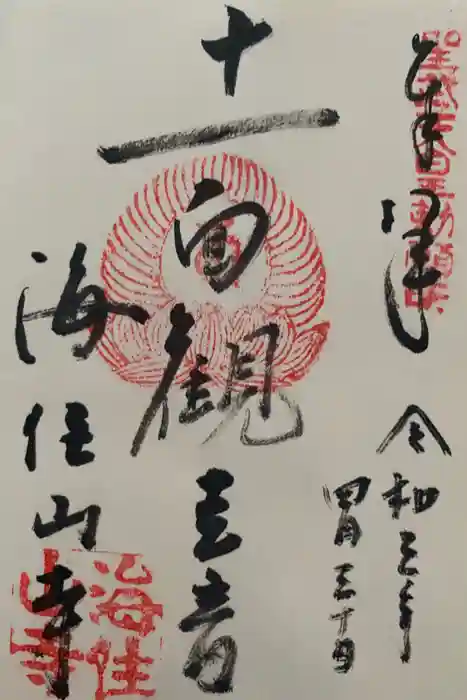 奉拝
令和三年
四月三十日
十一面観世音
海住山寺
海住山寺